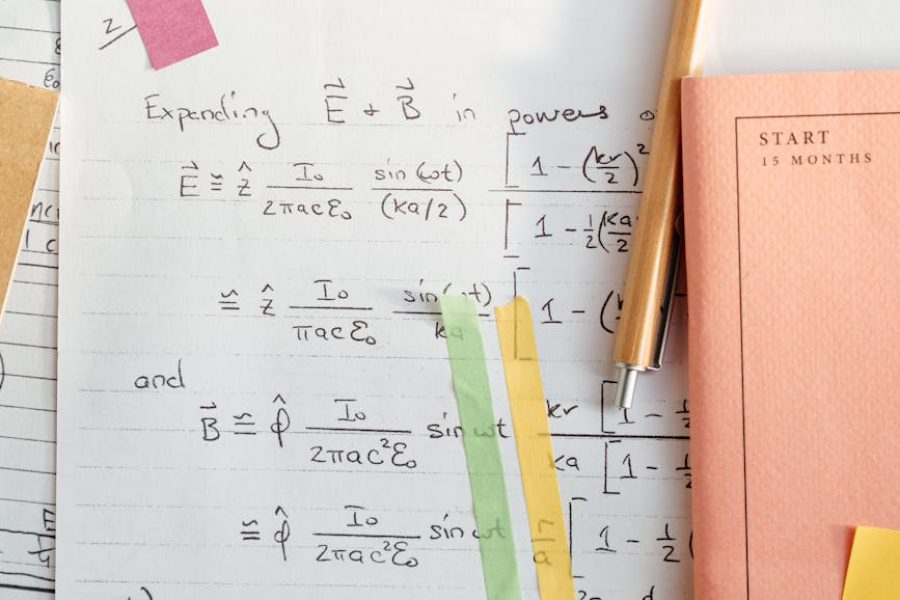 2
Expanding E⃗ + B⃗ in powers
E⃗ ≅ ẑ I₀/2πacε₀ sin(ωt)/(ka/2) [1 - (kr/2)²/[1 - ½(ka/2
≅ ẑ I₀/πacε₀ sin(ωt)/ka [1 - (
and
B⃗ ≅ φ̂ I₀/2πac²ε₀ sin ωt kr [1 - ½/ka [1 - ½
≅ φ̂ I₀/2πac²ε₀ sin ωt r/a [1 - ½(
START
15 MONTHS